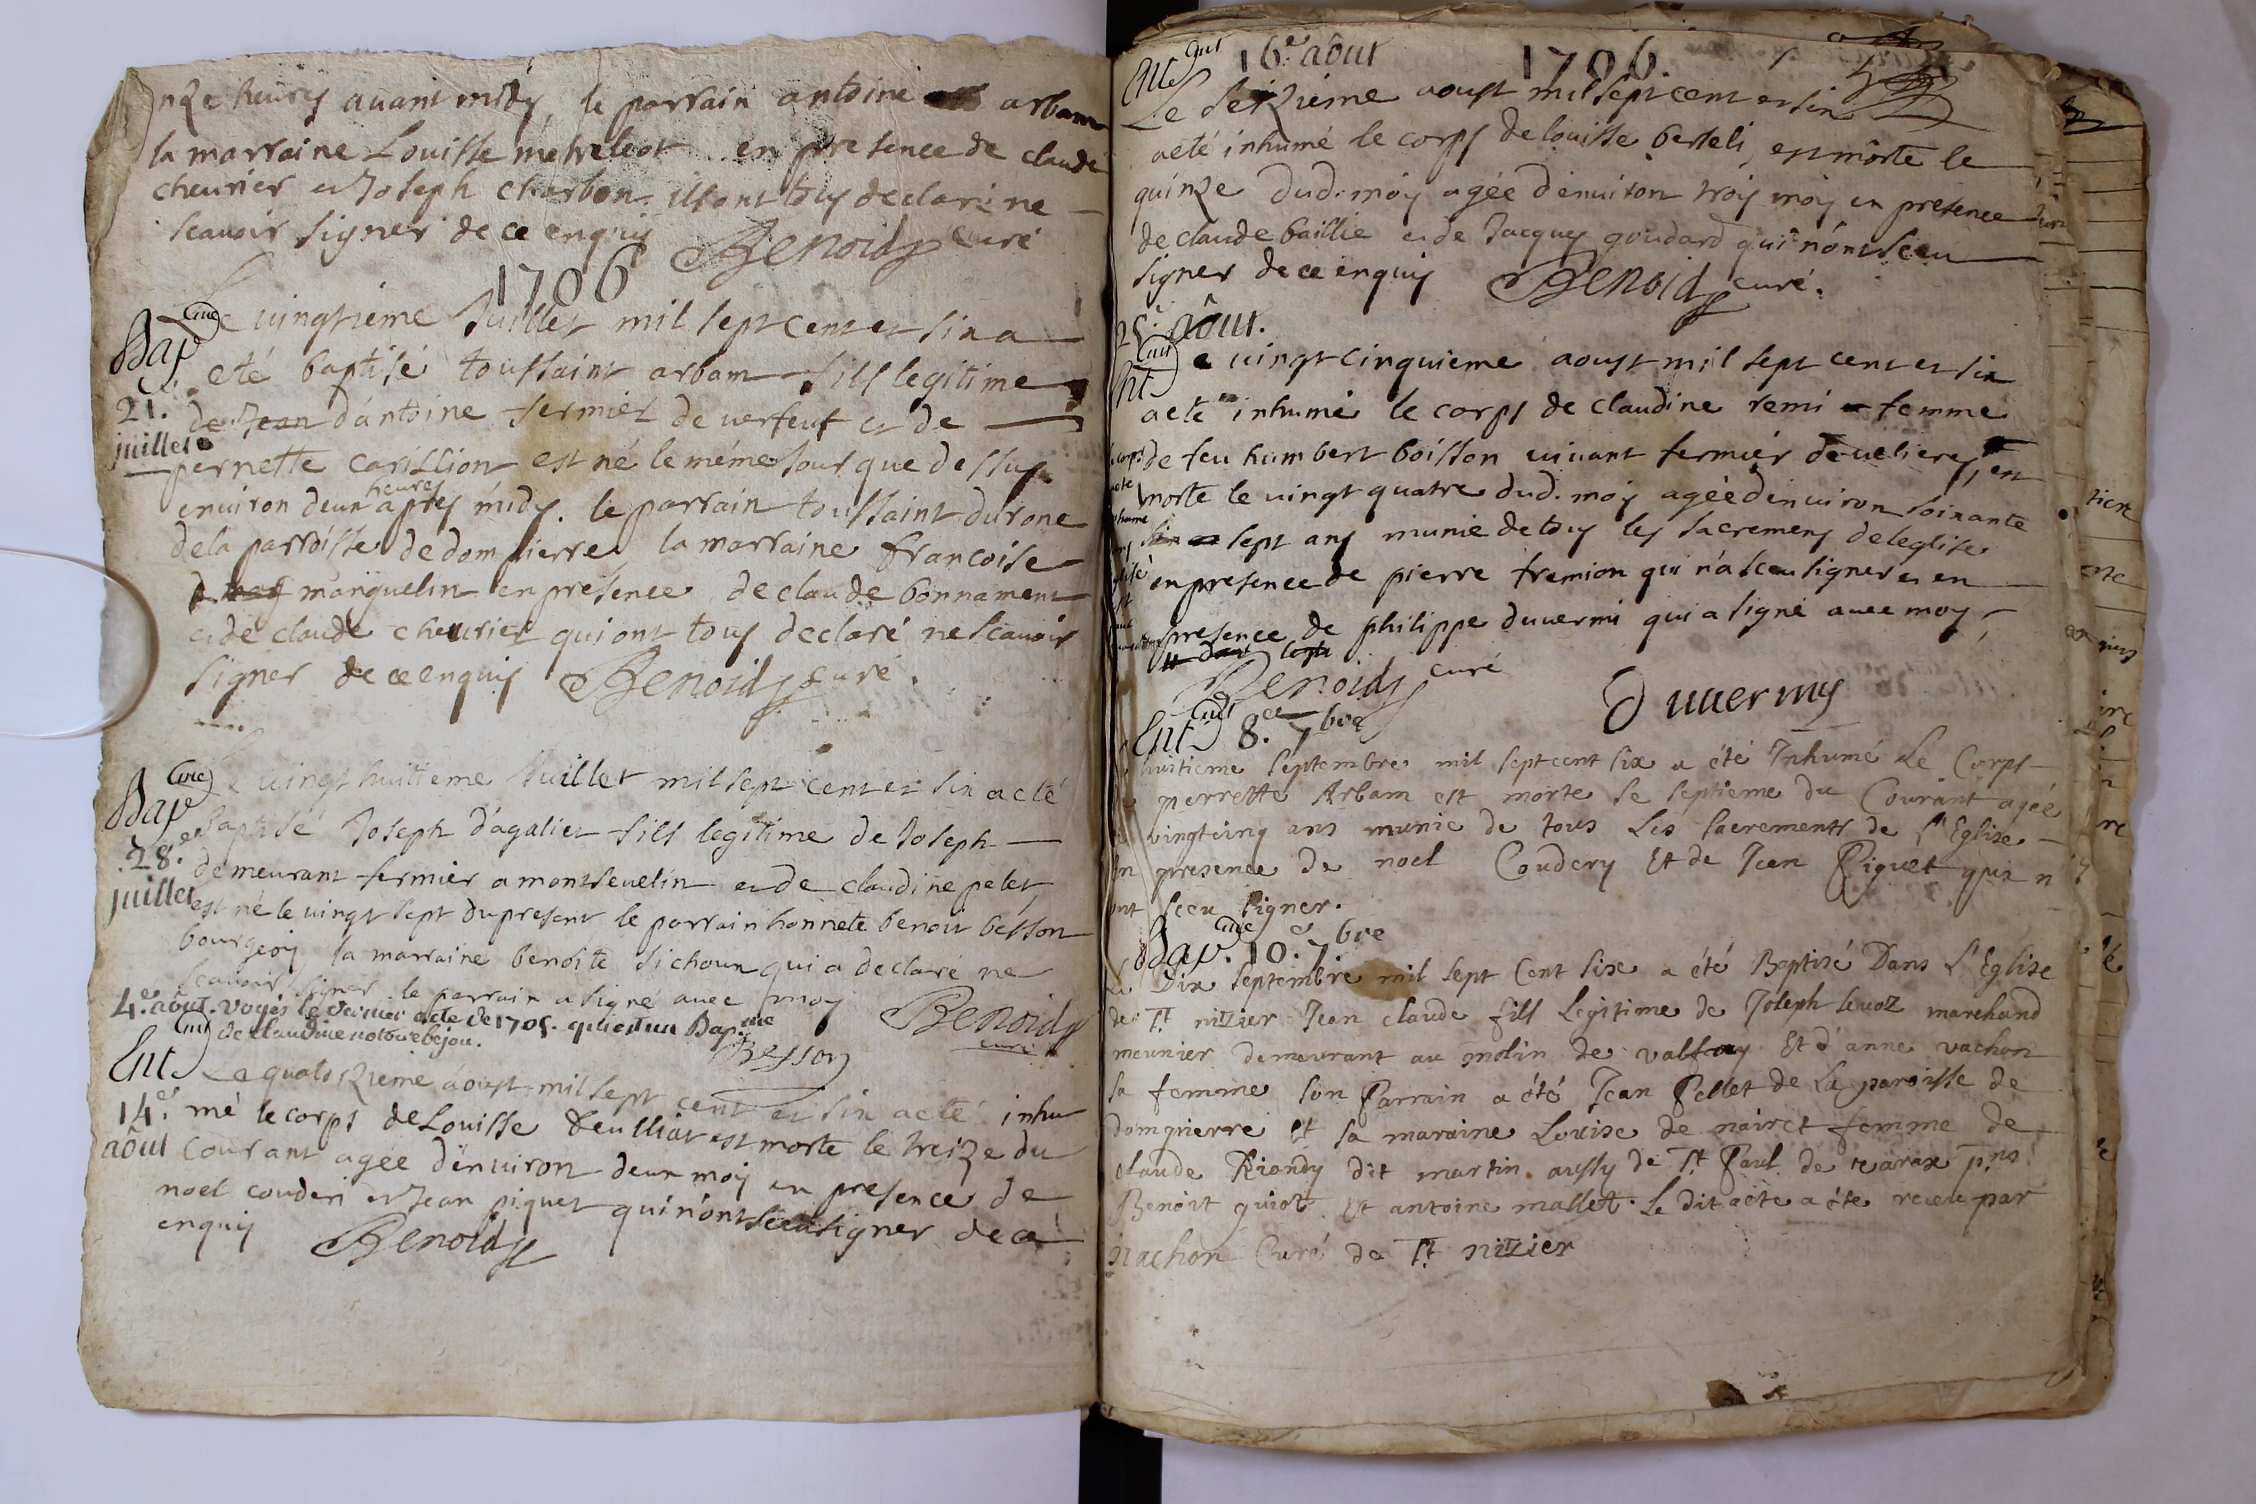 nze heures auant midy, le parrain antoine arbam
la marraine Louisse metreleot en presence de claude
cheurier et Joseph charbon. ils ont tous declaré ne
scauoir signer de ce enquis Benoid curé
1706
Bap
21.
juillet
Le uingtieme Juillet mil sept cent et six a
eté baptisé toussaint arbam fils legitime
de Jean d'antoine fermier de uerfeuf et de
pernette carillion est né le méme Jour que dessus
enuiron deux heures apres midy. le parrain toussaint durone
de la parroisse de dompierre la marraine francoise
manguelin en presence de claude bonnament
et de claude cheurier qui ont tous declaré ne scauoir
signer de ce enquis Benoid curé.
Bap
28.e
juillet
Le uingt huitieme Juillet mil sept cent et six a eté
baptisé Joseph d'agalier fils legitime de Joseph
demeurant fermier a montseuelin et de claudine pelet,
est né le uingt sept du present le parrain honnete benoit besson
bourgeois la marraine benoite sichoux qui a declaré ne
scauoir signer le parrain a signé auec moy Benoid
curé
4.e aôut. voyés le dernier acte de 1705. qui est un Bap.me
de claudine
Besson
Ent.
14.e
aôut
Le quatorzieme aoust mil sept cent et six a eté inhu
mé le corps de Louisse est morte le treize du
Courant agee d'enuiron deux mois en presence de
noel couderi et Jean piquet qui n'ont sceu signer de ce
enquis Benoid
Ent 16.e aôut 1706.
Le seizieme aoust mil sept cent et six
a eté inhumé le corps de louisse berteli, est môrte le
quinze dud. mois agée d'enuiron trois mois en presence
de claude baillie et de Jacques goudard qui n'ont sceu
signer de ce enquis Benoid curé.
25.e aôut.
Ent
Le uingt cinquieme aoust mil sept cent et six
a eté inhumé le corps de claudine remi femme
de feu humbert boisson uiuant fermier de uelieres, est
morte le uingt quatre dud. mois agée d'enuiron soixante
sept ans munie de tous les sacremens de leglise
en presence de pierre fremion qui n'a sceu signer et en
presence de philippe duuermi qui a signé auec moy
Benoid curé
Duuermy
Ent 8.e 7bre
huitieme septembre mil sept cent six a été Inhumé Le Corps
de perrette Arbam est morte le septieme du Courant agée
de vingtcinq ans munie de tous Les sacrements de L'Eglise
En presence de noel Coudery Et de Jean Piquet qui n'
ont sceu signer.
Bap. 10.e 7bre
Le Dix septembre mil sept Cent six a été Baptisé Dans L'Eglise
de St nizier Jean claude fils Legitime de Joseph leuoz marchand
meunier demeurant au molin de Et d'anne vachon
sa femme son Parrain a été Jean Pellet de La paroisse de
dompierre et sa maraine Louise de nairet femme de
claude Riondy dit martin aussy de St Paul de varax pns
Benoit guiot Et antoine mallet. Le dit acte a éte receu par
Nachon Curé de St nizier